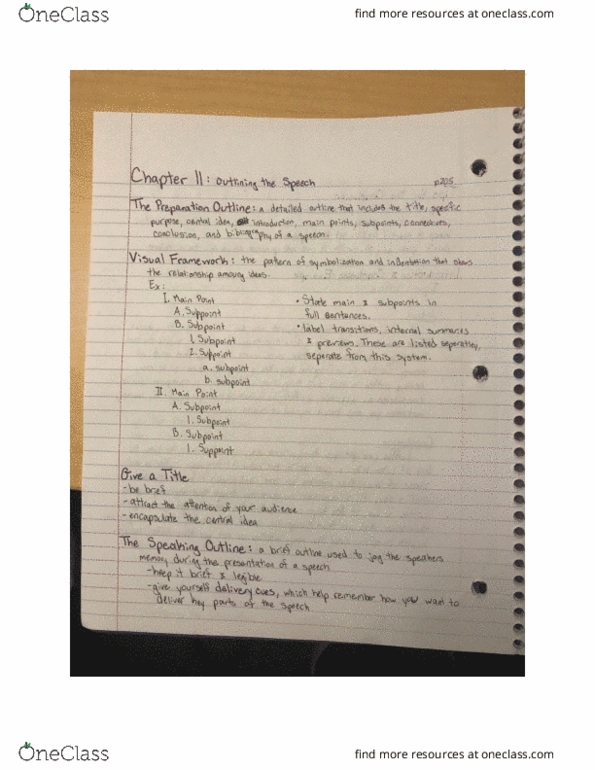 OneClass
find more resources at oneclass.com
Chapter 11: Outlining the Speech p205
The Preparation Outline: a detailed outline that includes the title, specific
purpose, central idea, introduction, main points, subpoints, connectives,
conclusion, and bibliography of a speech.
Visual Framework: the pattern of symbolization and indentation that shows
the relationship among ideas.
Ex:
I. Main Point
A. Suppoint
B. Subpoint
1. Subpoint
2. Suppoint
a. subpoint
b. subpoint
II. Main Point
A. Subpoint
1. Subpoint
B. Subpoint
1. Suppoint
• State main & subpoints in
full sentences.
• label transitions, internal summaries
& previews. These are listed seperatley,
seperate from this system.
Give a Title
- be brief
- attract the attention of your audience
- encapsulate the central idea
The Speaking Outline: a brief outline used to jog the speakers
memory during the presentation of a speech
- keep it brief & legible
- give yourself delivery cues, which help remember how you want to
deliver key parts of the speech
OneClass
find more resources at oneclass.com